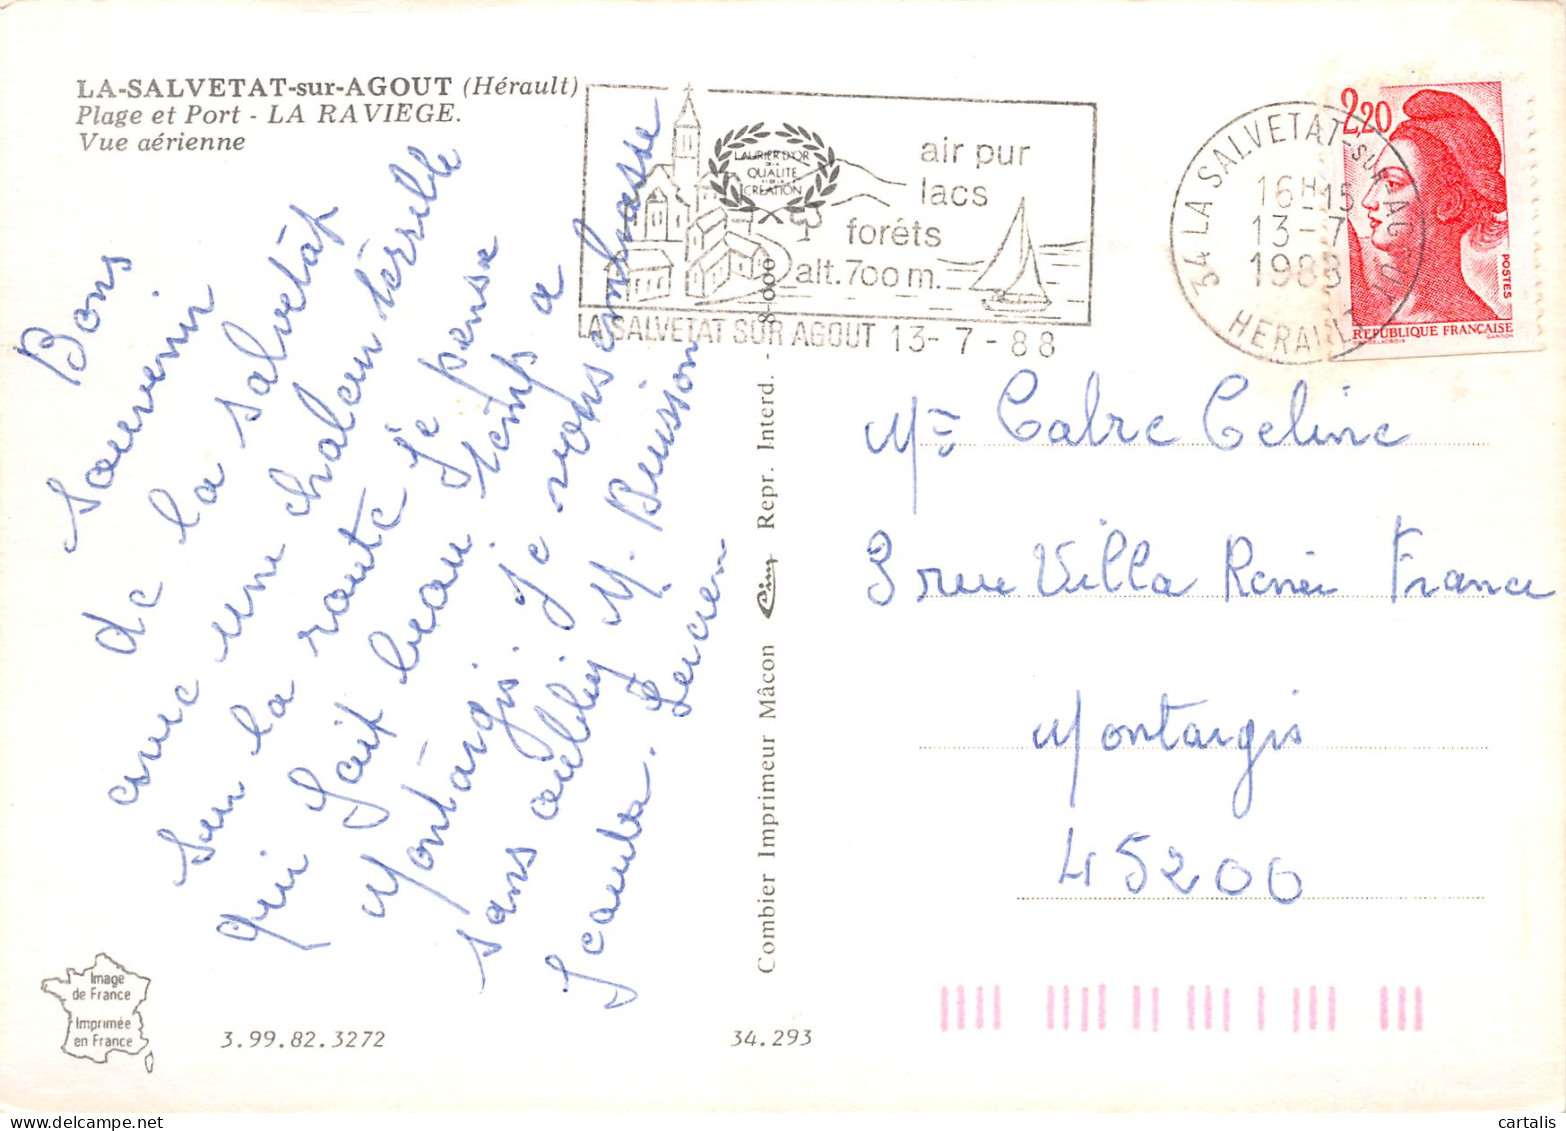 LA-SALVETAT-sur-AGOUT (Hérault)
Plage et Port - LA RAVIEGE.
Vue aérienne
LAURIER D'OR
DE LA
QUALITE
CREATION
air pur
lacs
forêts
alt. 700 m.
LA SALVETAT SUR AGOUT 13-7-88
34 LA SALVETAT-SUR-AGOUT
16H15
13-7
1988
HERAULT
2,20
POSTES
REPUBLIQUE FRANÇAISE
Bons
Souvenir
de la salvetât
avec une chaleur térrible
Sur la route Je pense
qui fait beau temp a
Montargis. Je vous embrasse
sans oublier M. Buisson
Lucien
Mme Cabre Celine
3 rue Villa Renée France
Montargis
45200
Combier Imprimeur Mâcon Cim Repr. Interd. - 8-000
Image
de France
Imprimée
en France
3.99.82.3272
34.293
cartalis